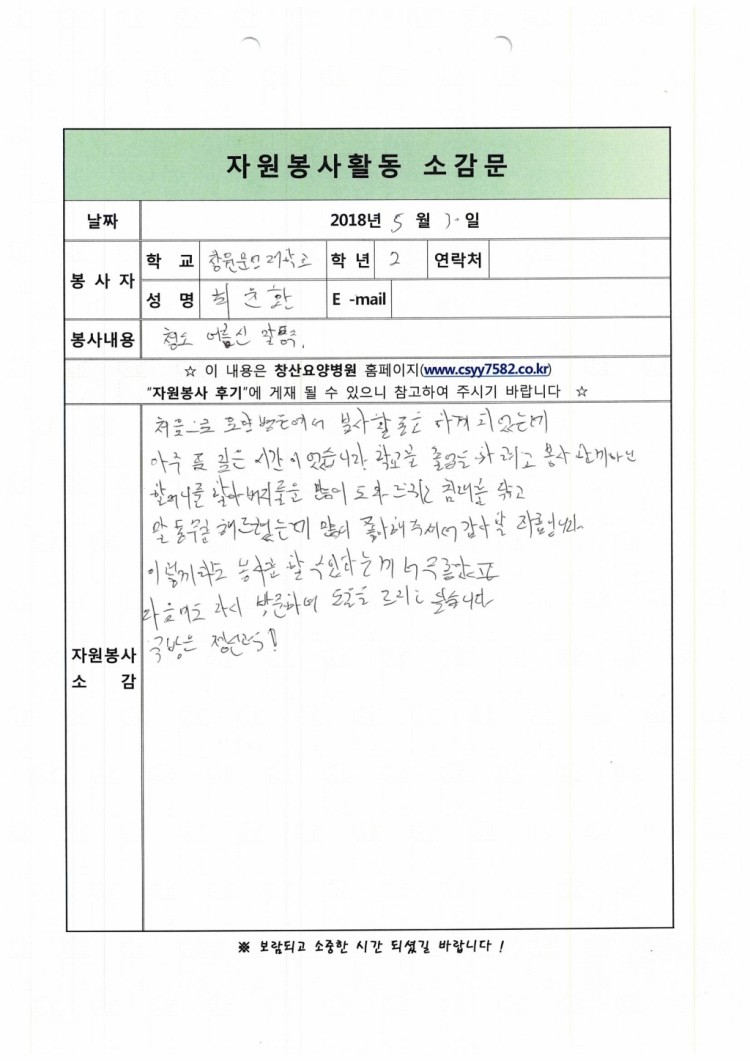 자원봉사활동 소감문
날짜 2018년 5 월 일
봉 사 자 학 교 창원문성대학교 학 년 2 연락처
성 명 최운환 E -mail
봉사내용 청소 어르신 말동무.
☆ 이 내용은 창산요양병원 홈페이지(www.csyy7582.co.kr)
"자원봉사 후기"에 게재 될 수 있으니 참고하여 주시기 바랍니다 ☆
자원봉사
소 감
처음으로 요양병원에서 봉사활동을 하게 되었는데
아주 뜻 깊은 시간이었습니다. 학교를 졸업을 하려고 봉사
할머니를 할아버지를 많이 도와 드리고 침대를 닦고
말동무를 해드렸는데 많이 좋아해주셔서 감사할 따름입니다.
이렇게라도 봉사를 할 수 있다는게
다음에도 다시 방문하여 도움을 드리고 싶습니다
※ 보람되고 소중한 시간 되셨길 바랍니다 !